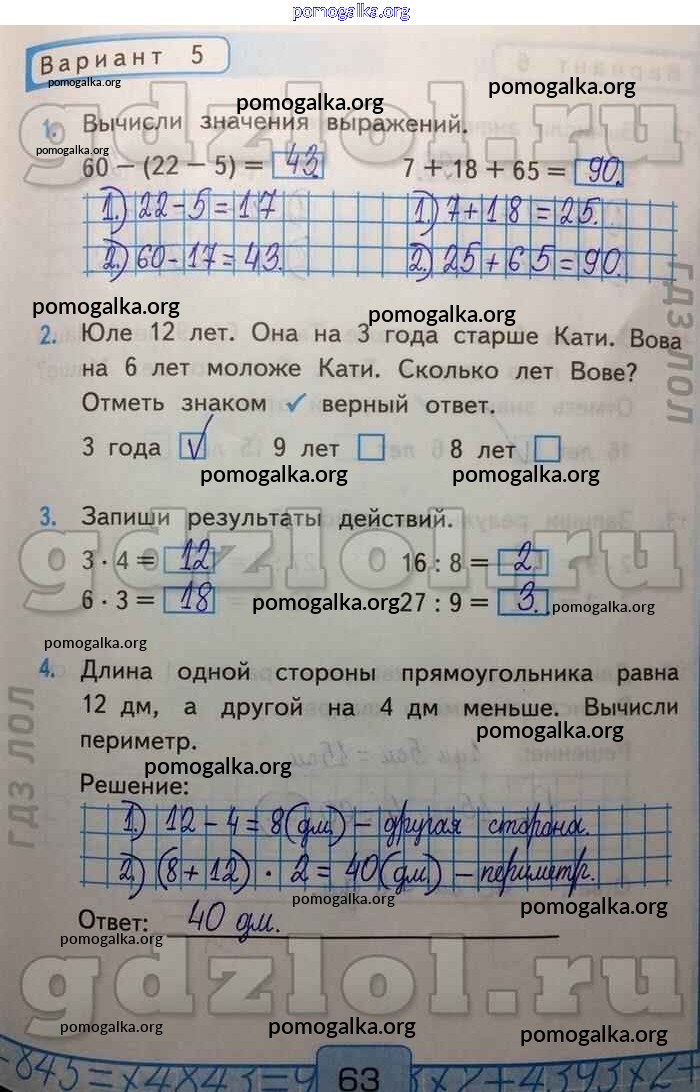 pomogalka.org
Вариант 5
pomogalka.org
gdzlol.ru
pomogalka.org pomogalka.org
1. Вычисли значения выражений.
pomogalka.org
60 – (22 – 5) = 43 7 + 18 + 65 = 90.
1.) 22-5=17 1.) 7+18=25.
2.) 60-17=43. 2.) 25+65=90.
ГДЗ ЛОЛ
pomogalka.org pomogalka.org
2. Юле 12 лет. Она на 3 года старше Кати. Вова
на 6 лет моложе Кати. Сколько лет Вове?
Отметь знаком ✓ верный ответ.
3 года ✓ 9 лет 8 лет
pomogalka.org pomogalka.org
3. Запиши результаты действий.
gdzlol.ru
3 · 4 = 12 16 : 8 = 2
6 · 3 = 18 pomogalka.org 27 : 9 = 3. pomogalka.org
pomogalka.org
4. Длина одной стороны прямоугольника равна
12 дм, а другой на 4 дм меньше. Вычисли
pomogalka.org
периметр.
pomogalka.org
ГДЗ ЛОЛ
Решение:
1.) 12-4=8(дм.) – другая сторона.
2.) (8+12) · 2=40(дм) – периметр.
pomogalka.org pomogalka.org
pomogalka.org
Ответ: 40 дм.
pomogalka.org pomogalka.org
gdzlol.ru
pomogalka.org pomogalka.org pomogalka.org
63